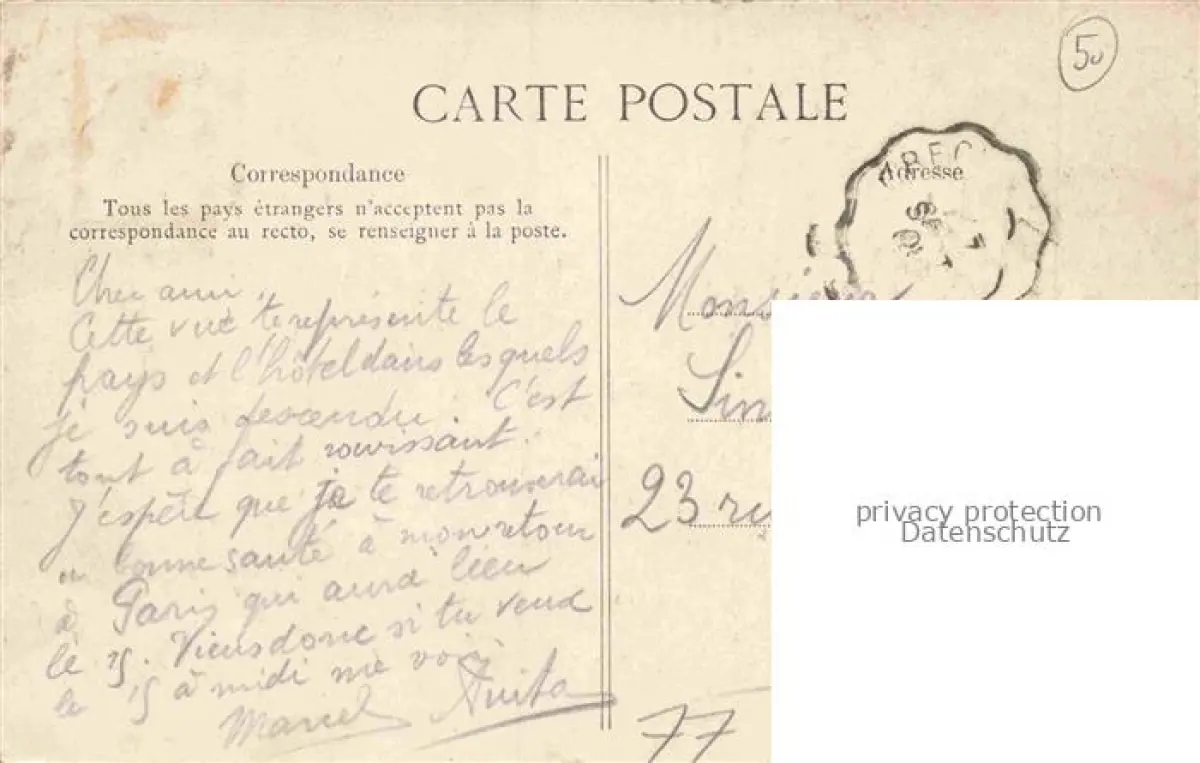 50
CARTE POSTALE
Correspondance
Tous les pays étrangers n'acceptent pas la
correspondance au recto, se renseigner à la poste.
Adresse
Cher ami,
Cette vue te représente le
pays et l'hôtel dans lesquels
je suis descendu. C'est
tout à fait ravissant.
J'espère que je te retrouverai
en bonne santé à mon retour
à Paris qui aura lieu
le 15. Viens donc si tu veux
le 15 à midi me voir
Marcel
Monsieur
Sin
23 ru
privacy protection
Datenschutz
77